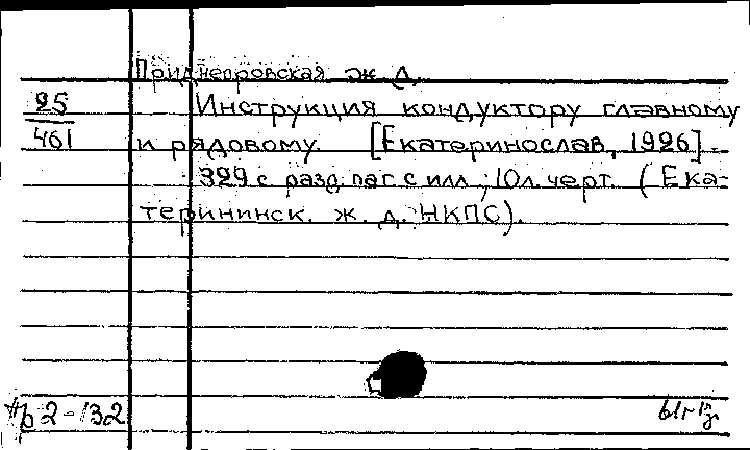 Приднепровская ж. д.
95
461
Инструкция кондуктору главному
и рядовому. [Екатеринослав, 1926].-
329 с. разд. паг. с илл.; 10 л. черт. ( Ека-
терининск. ж. д. НКПС).
Пр 2-132